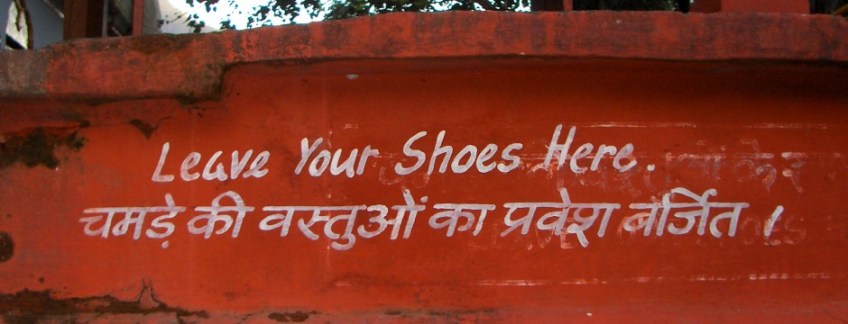 Leave Your Shoes Here.
चमड़े की वस्तुओं का प्रवेश बर्जित !